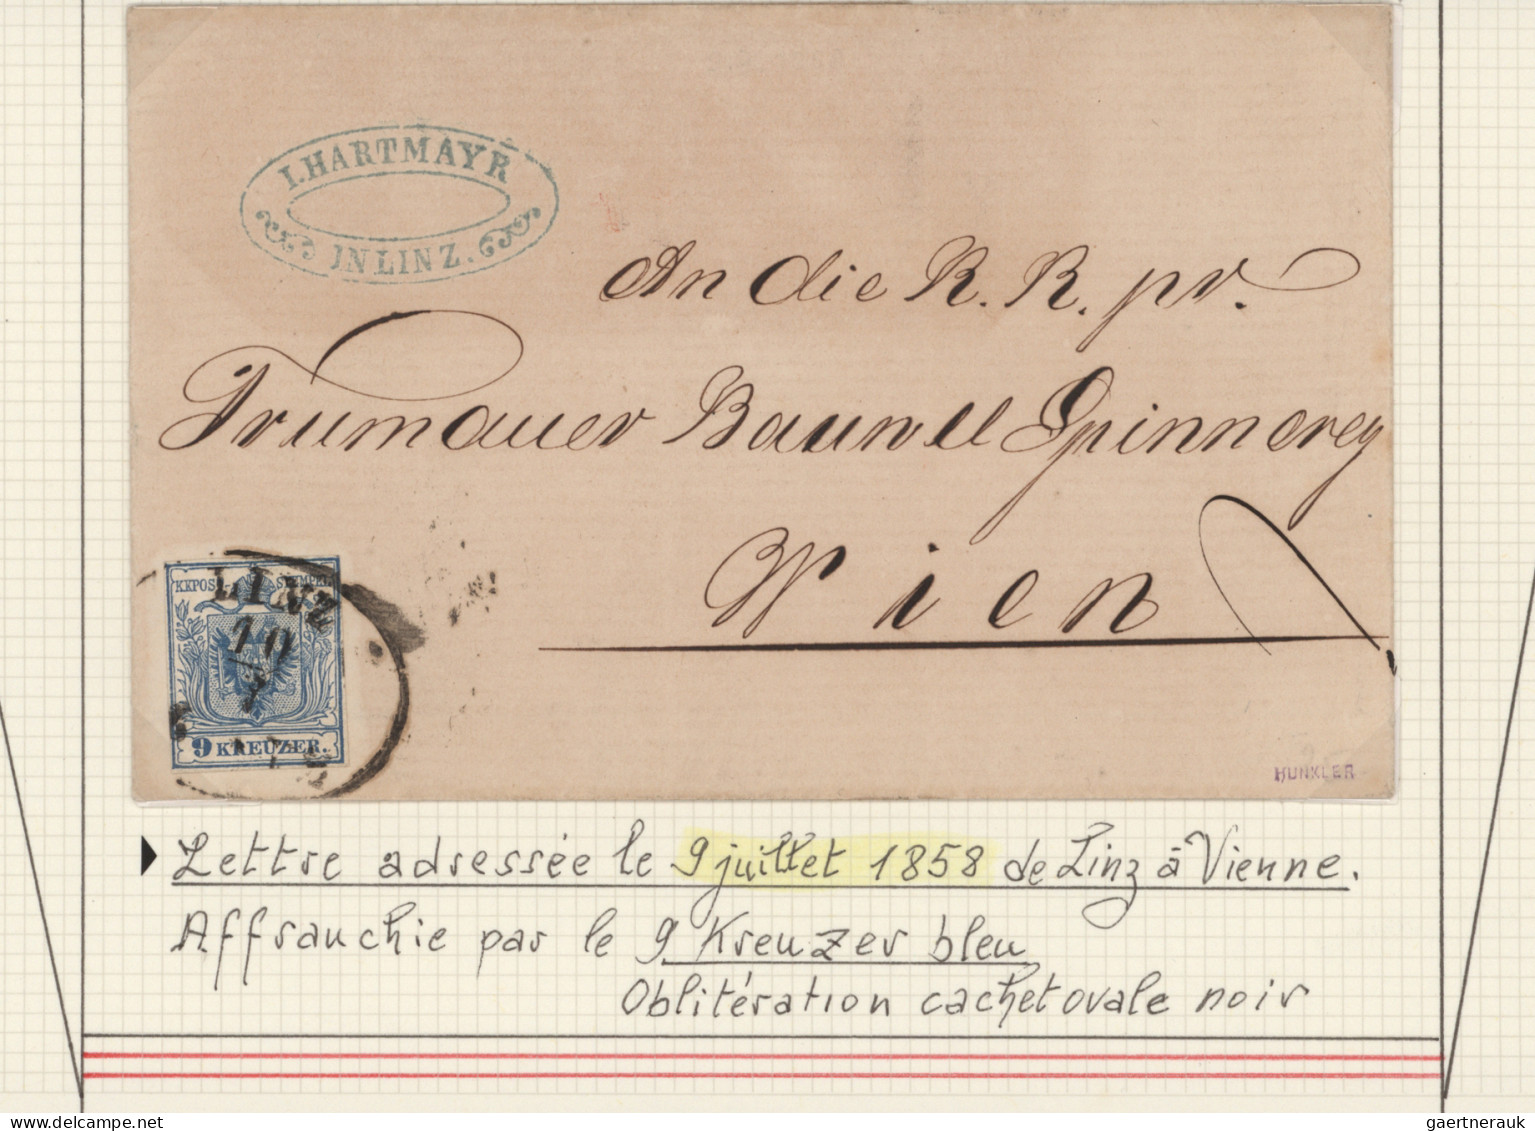 I. HARTMAYR
IN LINZ.
An die K. K. pr.
Trumauer Baumwll Spinnerey
Wien
KKPOST-STEMPEL
LINZ
10
7
9 KREUZER.
HUNKLER
Lettre adressée le 9 juillet 1858 de Linz à Vienne.
Affranchie par le 9 Kreuzer bleu
Oblitération cachet ovale noir
gaertnerauk